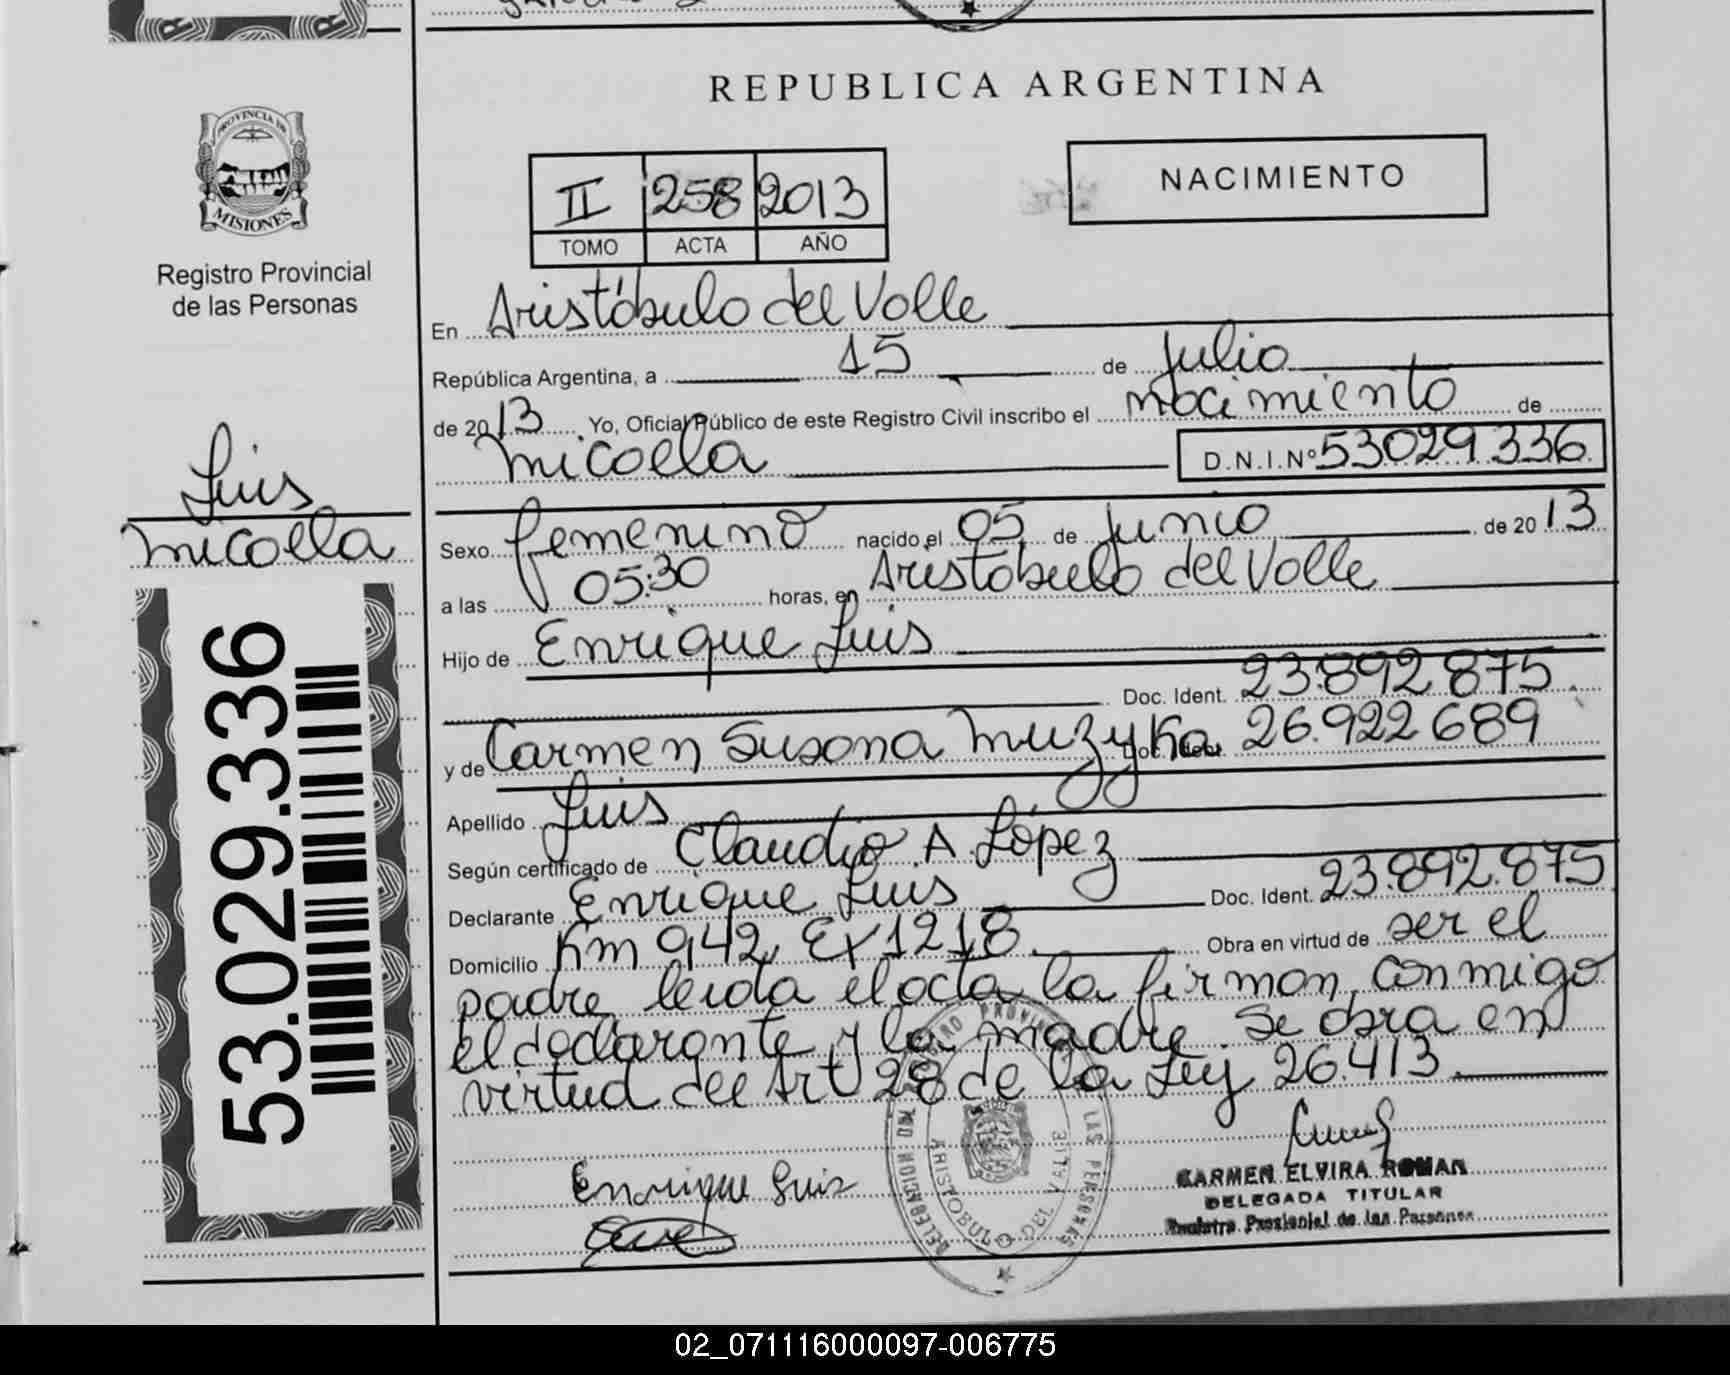 REPUBLICA ARGENTINA
PROVINCIA DE
MISIONES
Registro Provincial
de las Personas
II 258 2013
TOMO ACTA AÑO
NACIMIENTO
En Aristóbulo del Valle
República Argentina, a 15 de Julio
de 2013 Yo, Oficial Público de este Registro Civil inscribo el nacimiento de
Micaela D.N.I.Nº 53029336
Luis
Micaela
Sexo femenino nacido el 05 de Junio de 2013
a las 05:30 horas, en Aristóbulo del Valle
Hijo de Enrique Luis
Doc. Ident. 23.892 875
y de Carmen Susana Muzyka 26.922 689
Apellido Luis
Según certificado de Claudio A. López
Declarante Enrique Luis Doc. Ident. 23.892.875
Domicilio Km 942 Ex 1218 Obra en virtud de ser el
padre leida el acta la firman conmigo
el declarante y la madre. Se obra en
virtud del Art 28 de la Ley 26.413
53.029.336
Enrique Luis
CARMEN ELVIRA ROMAN
DELEGADA TITULAR
Registro Provincial de las Personas
ARISTOBULO DEL VALLE
02_071116000097-006775